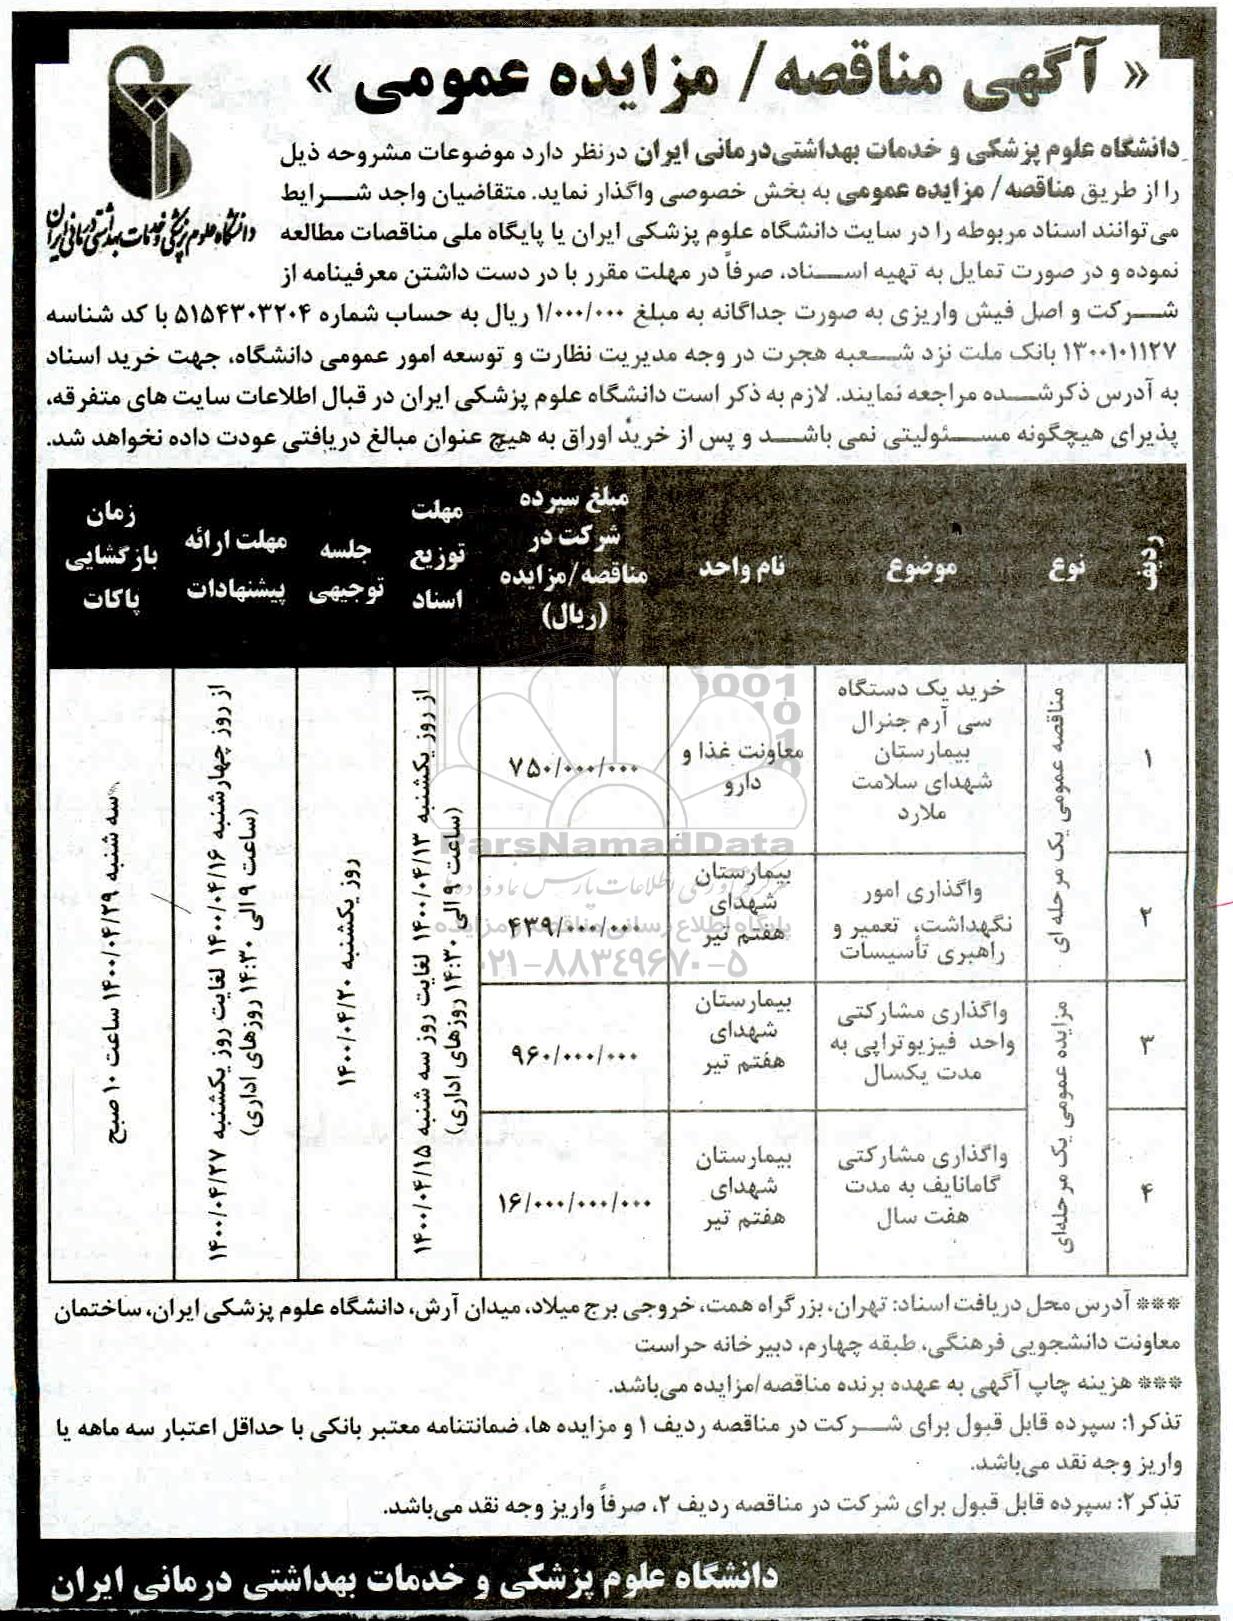 « آگهی مناقصه/ مزایده عمومی »
دانشگاه علوم پزشکی و خدمات بهداشتی درمانی ایران
دانشگاه علوم پزشکی و خدمات بهداشتی‌درمانی ایران درنظر دارد موضوعات مشروحه ذیل
را از طریق مناقصه/ مزایده عمومی به بخش خصوصی واگذار نماید. متقاضیان واجد شرایط
می‌توانند اسناد مربوطه را در سایت دانشگاه علوم پزشکی ایران یا پایگاه ملی مناقصات مطالعه
نموده و در صورت تمایل به تهیه اسناد، صرفاً در مهلت مقرر با در دست داشتن معرفینامه از
شرکت و اصل فیش واریزی به صورت جداگانه به مبلغ ۱/۰۰۰/۰۰۰ ریال به حساب شماره ۵۱۵۴۳۰۳۲۰۴ با کد شناسه
۱۳۰۰۱۰۱۱۲۷ بانک ملت نزد شعبه هجرت در وجه مدیریت نظارت و توسعه امور عمومی دانشگاه، جهت خرید اسناد
به آدرس ذکرشده مراجعه نمایند. لازم به ذکر است دانشگاه علوم پزشکی ایران در قبال اطلاعات سایت های متفرقه،
پذیرای هیچگونه مسئولیتی نمی باشد و پس از خرید اوراق به هیچ عنوان مبالغ دریافتی عودت داده نخواهد شد.
ردیف
نوع
موضوع
نام واحد
مبلغ سپرده
شرکت در
مناقصه/مزایده
(ریال)
مهلت
توزیع
اسناد
جلسه
توجیهی
مهلت ارائه
پیشنهادات
زمان
بازگشایی
پاکات
۱
مناقصه عمومی یک مرحله ای
خرید یک دستگاه
سی آرم جنرال
بیمارستان
شهدای سلامت
ملارد
معاونت غذا و
دارو
۷۵۰/۰۰۰/۰۰۰
از روز یکشنبه ۱۴۰۰/۰۴/۱۳ لغایت روز سه شنبه ۱۴۰۰/۰۴/۱۵
(ساعت ۹ الی ۱۴:۳۰ روزهای اداری)
روز یکشنبه ۱۴۰۰/۰۴/۲۰
از روز چهارشنبه ۱۴۰۰/۰۴/۱۶ لغایت روز یکشنبه ۱۴۰۰/۰۴/۲۷
(ساعت ۹ الی ۱۴:۳۰ روزهای اداری)
سه شنبه ۱۴۰۰/۰۴/۲۹ ساعت ۱۰ صبح
۲
واگذاری امور
نگهداشت، تعمیر و
راهبری تأسیسات
بیمارستان
شهدای
هفتم تیر
۴۳۹/۰۰۰/۰۰۰
۳
مزایده عمومی یک مرحله‌ای
واگذاری مشارکتی
واحد فیزیوتراپی به
مدت یکسال
بیمارستان
شهدای
هفتم تیر
۹۶۰/۰۰۰/۰۰۰
۴
واگذاری مشارکتی
گامانایف به مدت
هفت سال
بیمارستان
شهدای
هفتم تیر
۱۶/۰۰۰/۰۰۰/۰۰۰
ParsNamadData
پایگاه اطلاع رسانی مناقصه و مزایده
۰۲۱-۸۸۳۴۹۶۷۰-۵
*** آدرس محل دریافت اسناد: تهران، بزرگراه همت، خروجی برج میلاد، میدان آرش، دانشگاه علوم پزشکی ایران، ساختمان
معاونت دانشجویی فرهنگی، طبقه چهارم، دبیرخانه حراست
*** هزینه چاپ آگهی به عهده برنده مناقصه/مزایده می‌باشد.
تذکر۱: سپرده قابل قبول برای شرکت در مناقصه ردیف ۱ و مزایده ها، ضمانتنامه معتبر بانکی با حداقل اعتبار سه ماهه یا
واریز وجه نقد می‌باشد.
تذکر۲: سپرده قابل قبول برای شرکت در مناقصه ردیف ۲، صرفاً واریز وجه نقد می‌باشد.
دانشگاه علوم پزشکی و خدمات بهداشتی درمانی ایران